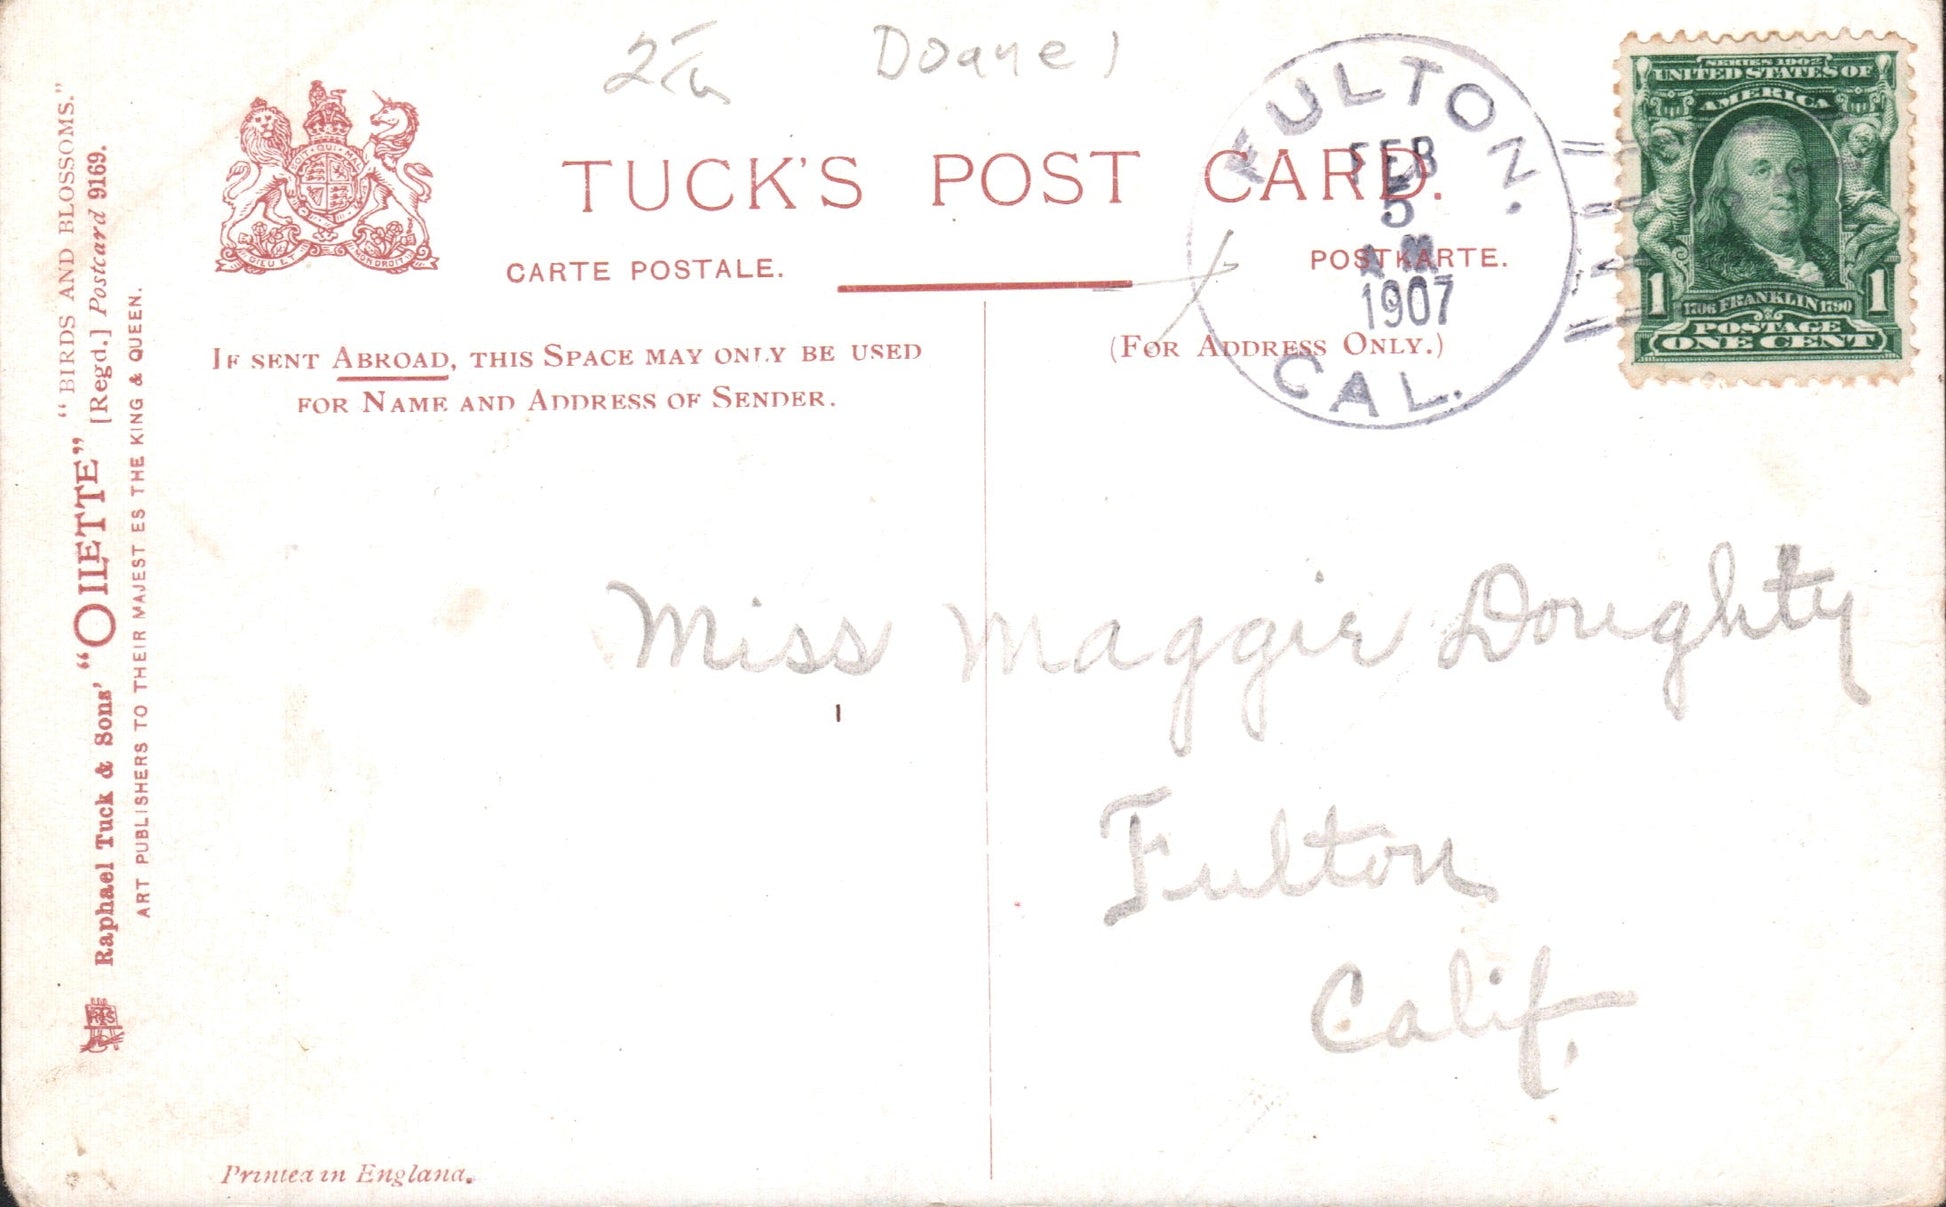 Doane 1
TUCK'S POST CARD.
CARTE POSTALE.
POSTKARTE.
IF SENT ABROAD, THIS SPACE MAY ONLY BE USED
FOR NAME AND ADDRESS OF SENDER.
(FOR ADDRESS ONLY.)
FULTON.
FEB
5
AM
1907
CAL.
SERIES 1902
UNITED STATES OF
AMERICA
1706 FRANKLIN 1790
1 1
POSTAGE
ONE CENT
DIEU ET MON DROIT
"BIRDS AND BLOSSOMS."
Raphael Tuck & Sons' "OILETTE" [Regd.] Postcard 9169.
ART PUBLISHERS TO THEIR MAJESTIES THE KING & QUEEN.
Miss Maggie Doughty
Fulton
Calif.
Printed in England.